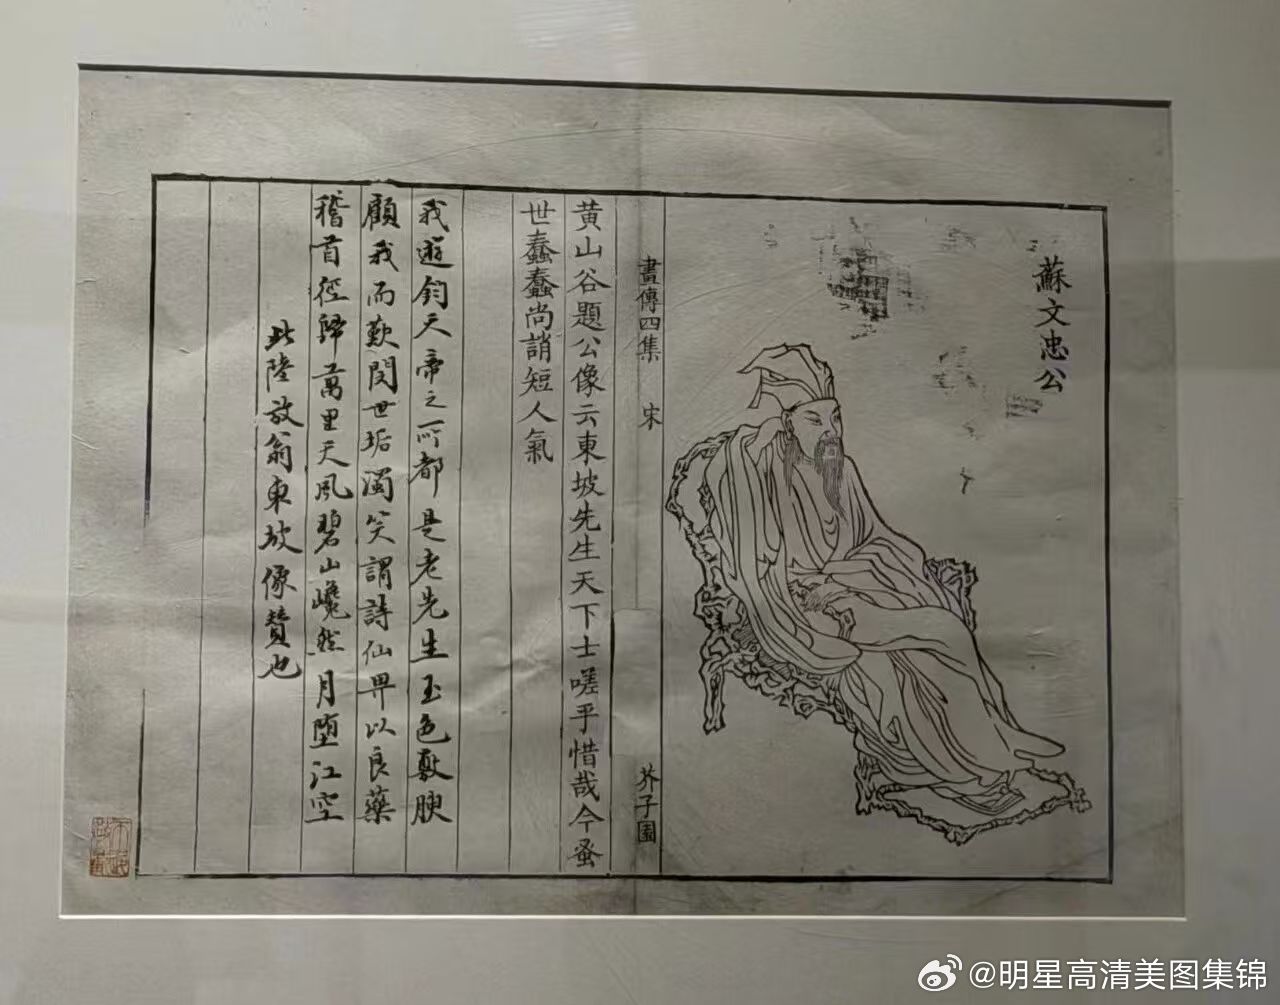 蘇文忠公
畫傳四集 宋 芥子園
黄山谷題公像云東坡先生天下士嗟乎惜哉今蚤
世蠢蠢尚誚短人氣
我遊鈞天帝之所都是老先生玉色敷腴
顧我而歎閔世垢濁笑謂詩仙畀以良藥
稽首徑歸萬里天風碧山巉然月墮江空
此陸放翁東坡像贊也
@明星高清美图集锦